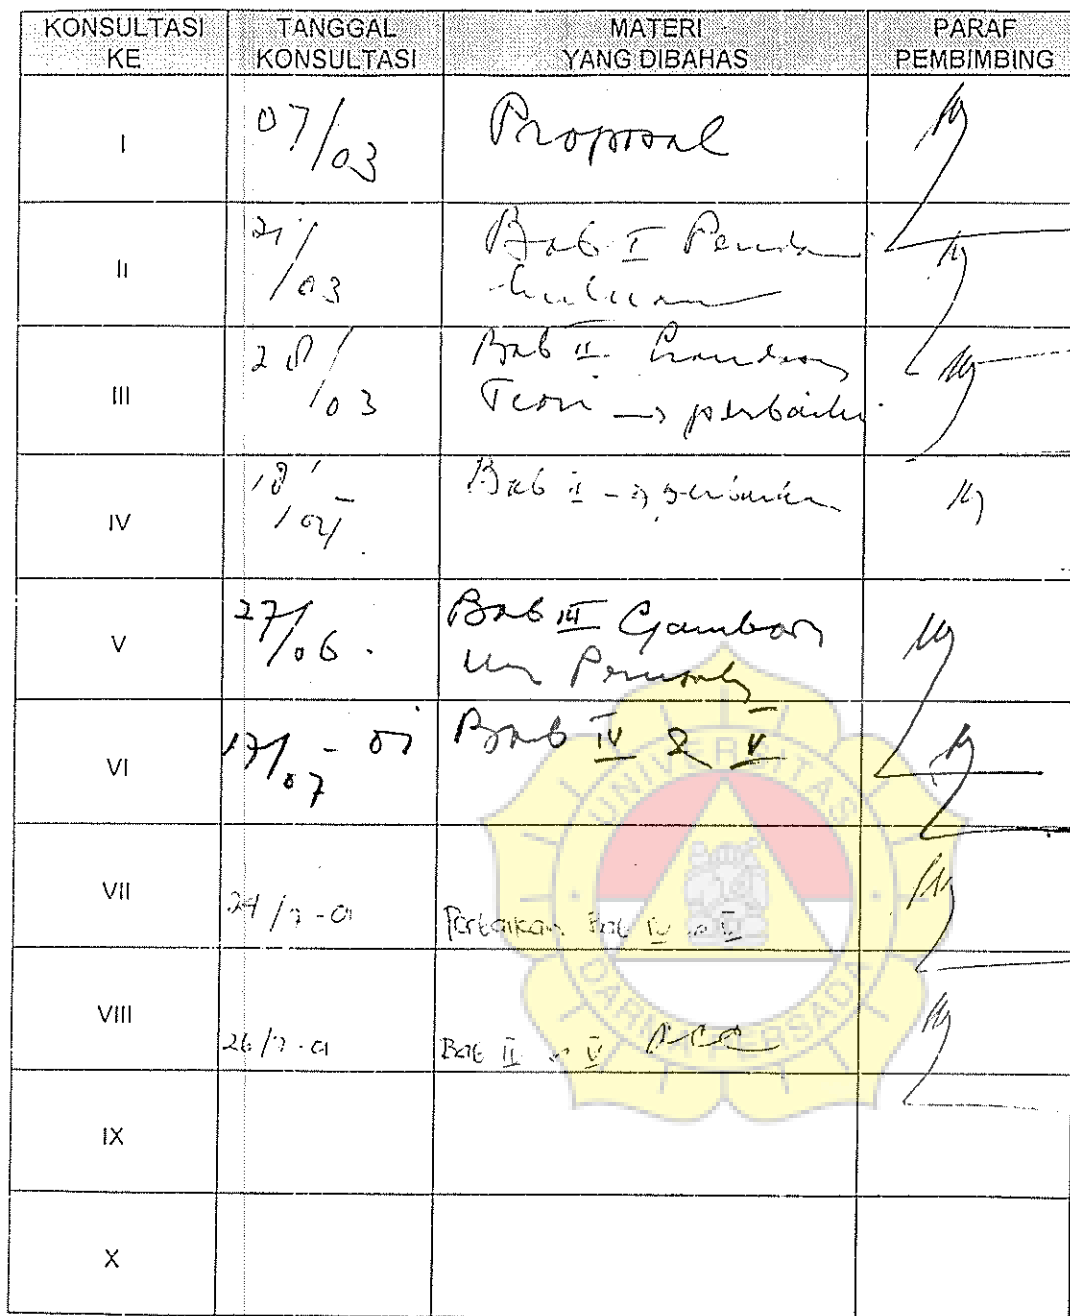 KONSULTASI KE
TANGGAL KONSULTASI
MATERI YANG DIBAHAS
PARAF PEMBIMBING
I
07/03
Proposal
II
21/03
Bab I Penda
huluan
III
28/03
Bab II Landasan
Teori → perbaiki
IV
18/04
Bab II →
V
27/06.
Bab III Gambaran
Um Perusah
VI
17/07 - 01
Bab IV & V
VII
24/7-01
Perbaikan Bab IV & V
VIII
26/7-01
Bab II V ACC
IX
X
UNIVERSITAS
DARMA PERSADA